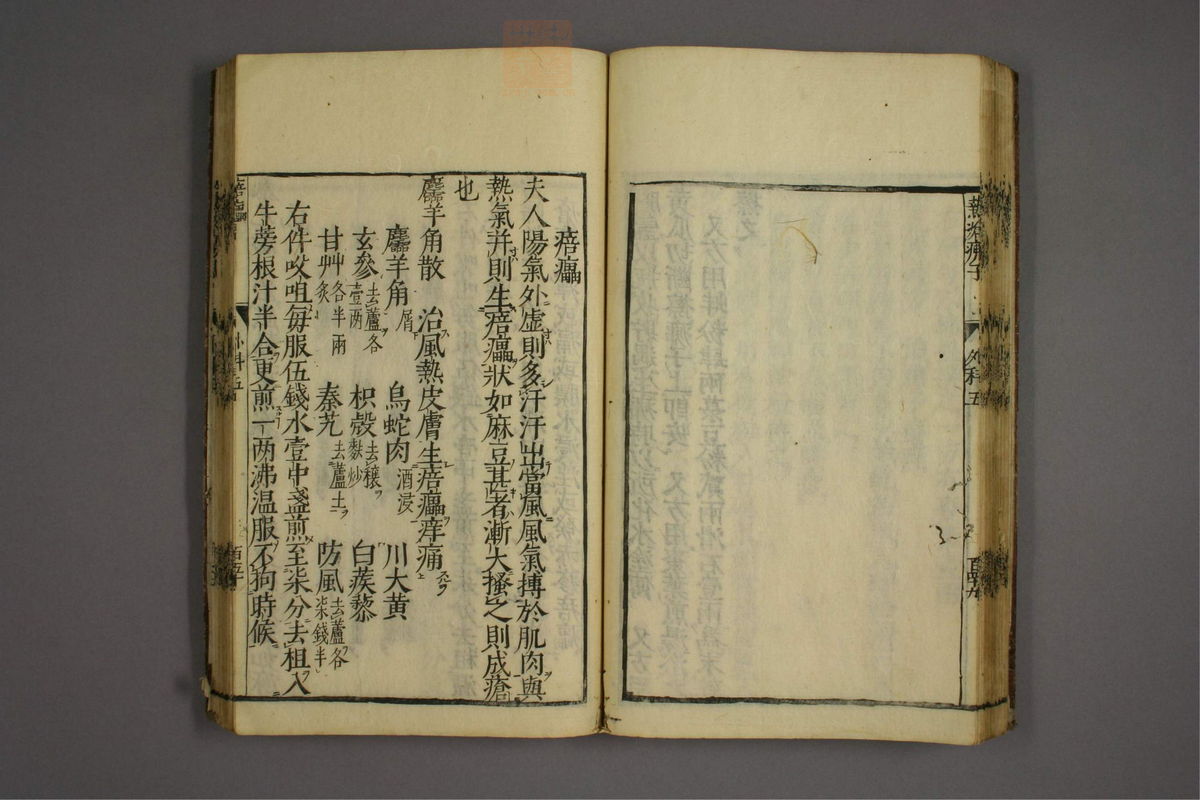 熱沸瘡子
外科五
百四九
痦㿔
夫人陽氣外虛則多汗汗出當風風氣搏於肌肉與
熱氣并則生痦㿔狀如麻豆甚者漸大搔之則成瘡
也
麢羊角散 治風熱皮膚生痦㿔痒痛
麢羊角屑 烏蛇肉酒浸 川大黃
玄參去蘆各壹两 枳殼去穰麩炒 白蒺藜
甘艸炙各半兩 秦艽去蘆土 防風去蘆各柒錢半
右件㕮咀每服伍錢水壹中盞煎至柒分去柤入
牛蒡根汁半合更煎一两沸温服不拘時候
痦㿔
外科五
百五十